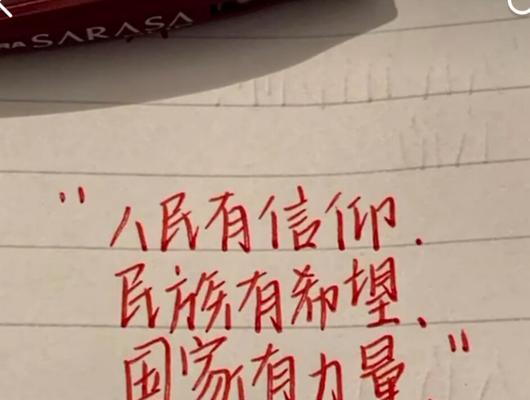 SARASA
"人民有信仰.
民族有希望.
国家有力量."